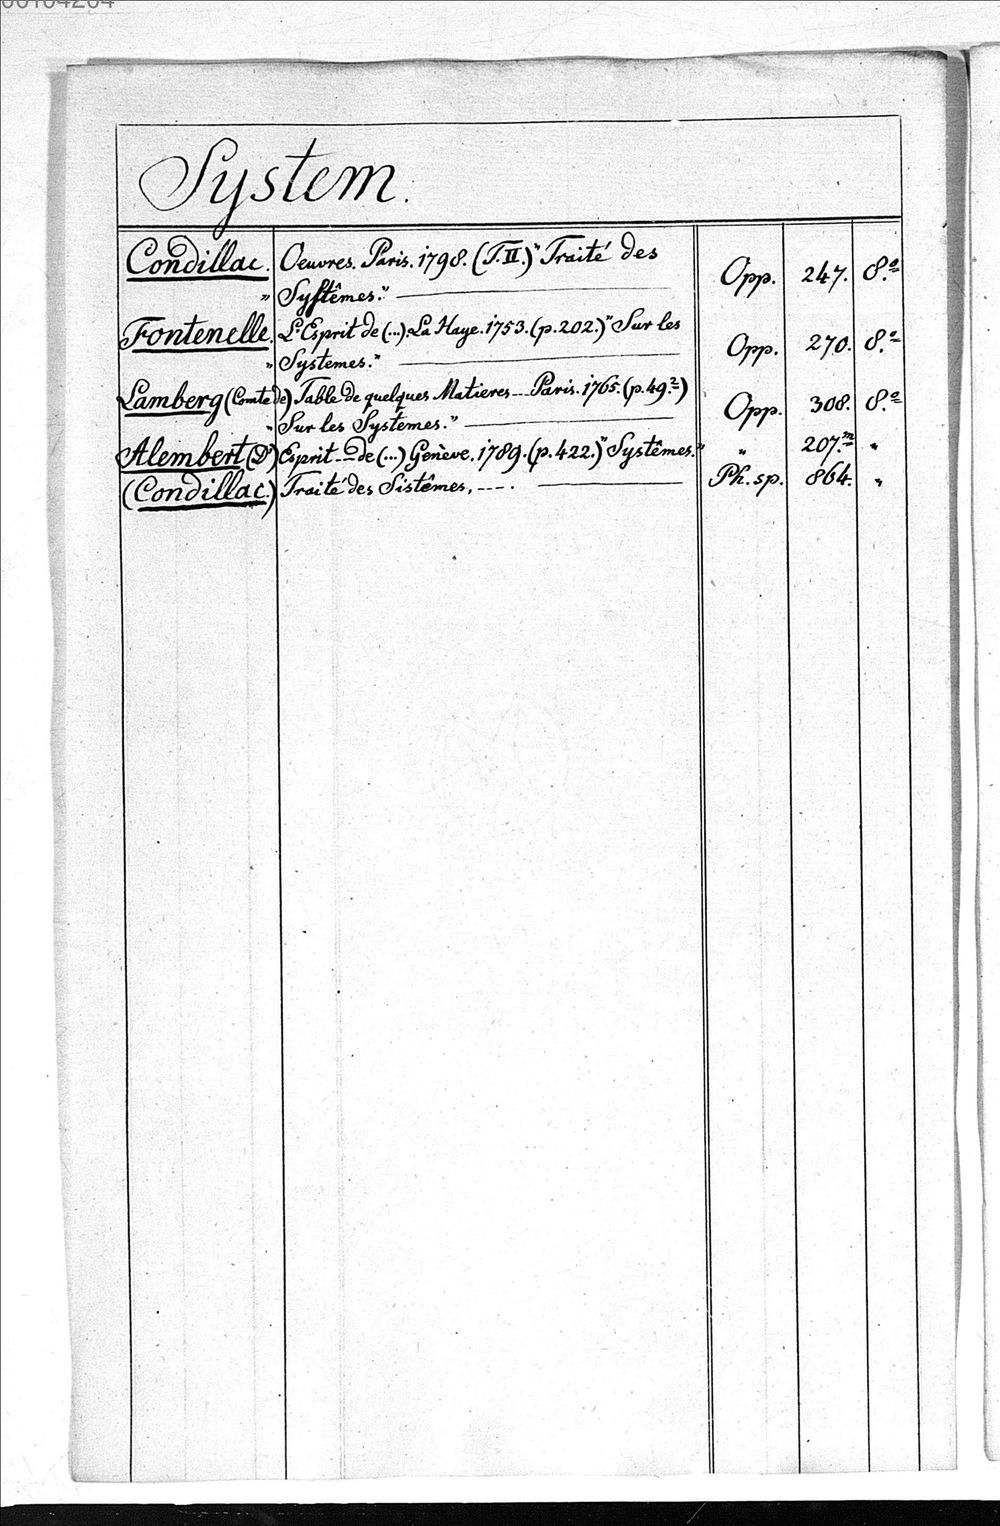 System.
Condillac. Oeuvres. Paris. 1798. (T. II.) "Traité des
" Systêmes." Opp. 247. 8.º
Fontenelle. L'Esprit de (...). La Haye. 1753. (p. 202.) "Sur les
" Systemes." Opp. 270. 8.º
Lamberg (Comte de) Table de quelques Matieres --- Paris. 1765. (p. 49.2)
" Sur les Systemes." Opp. 308. 8.º
Alembert (D') Esprit --- de (...) Genève. 1789. (p. 422.) "Systêmes." " 207.m "
(Condillac.) Traité des Sistêmes, ---. Ph. sp. 864. "